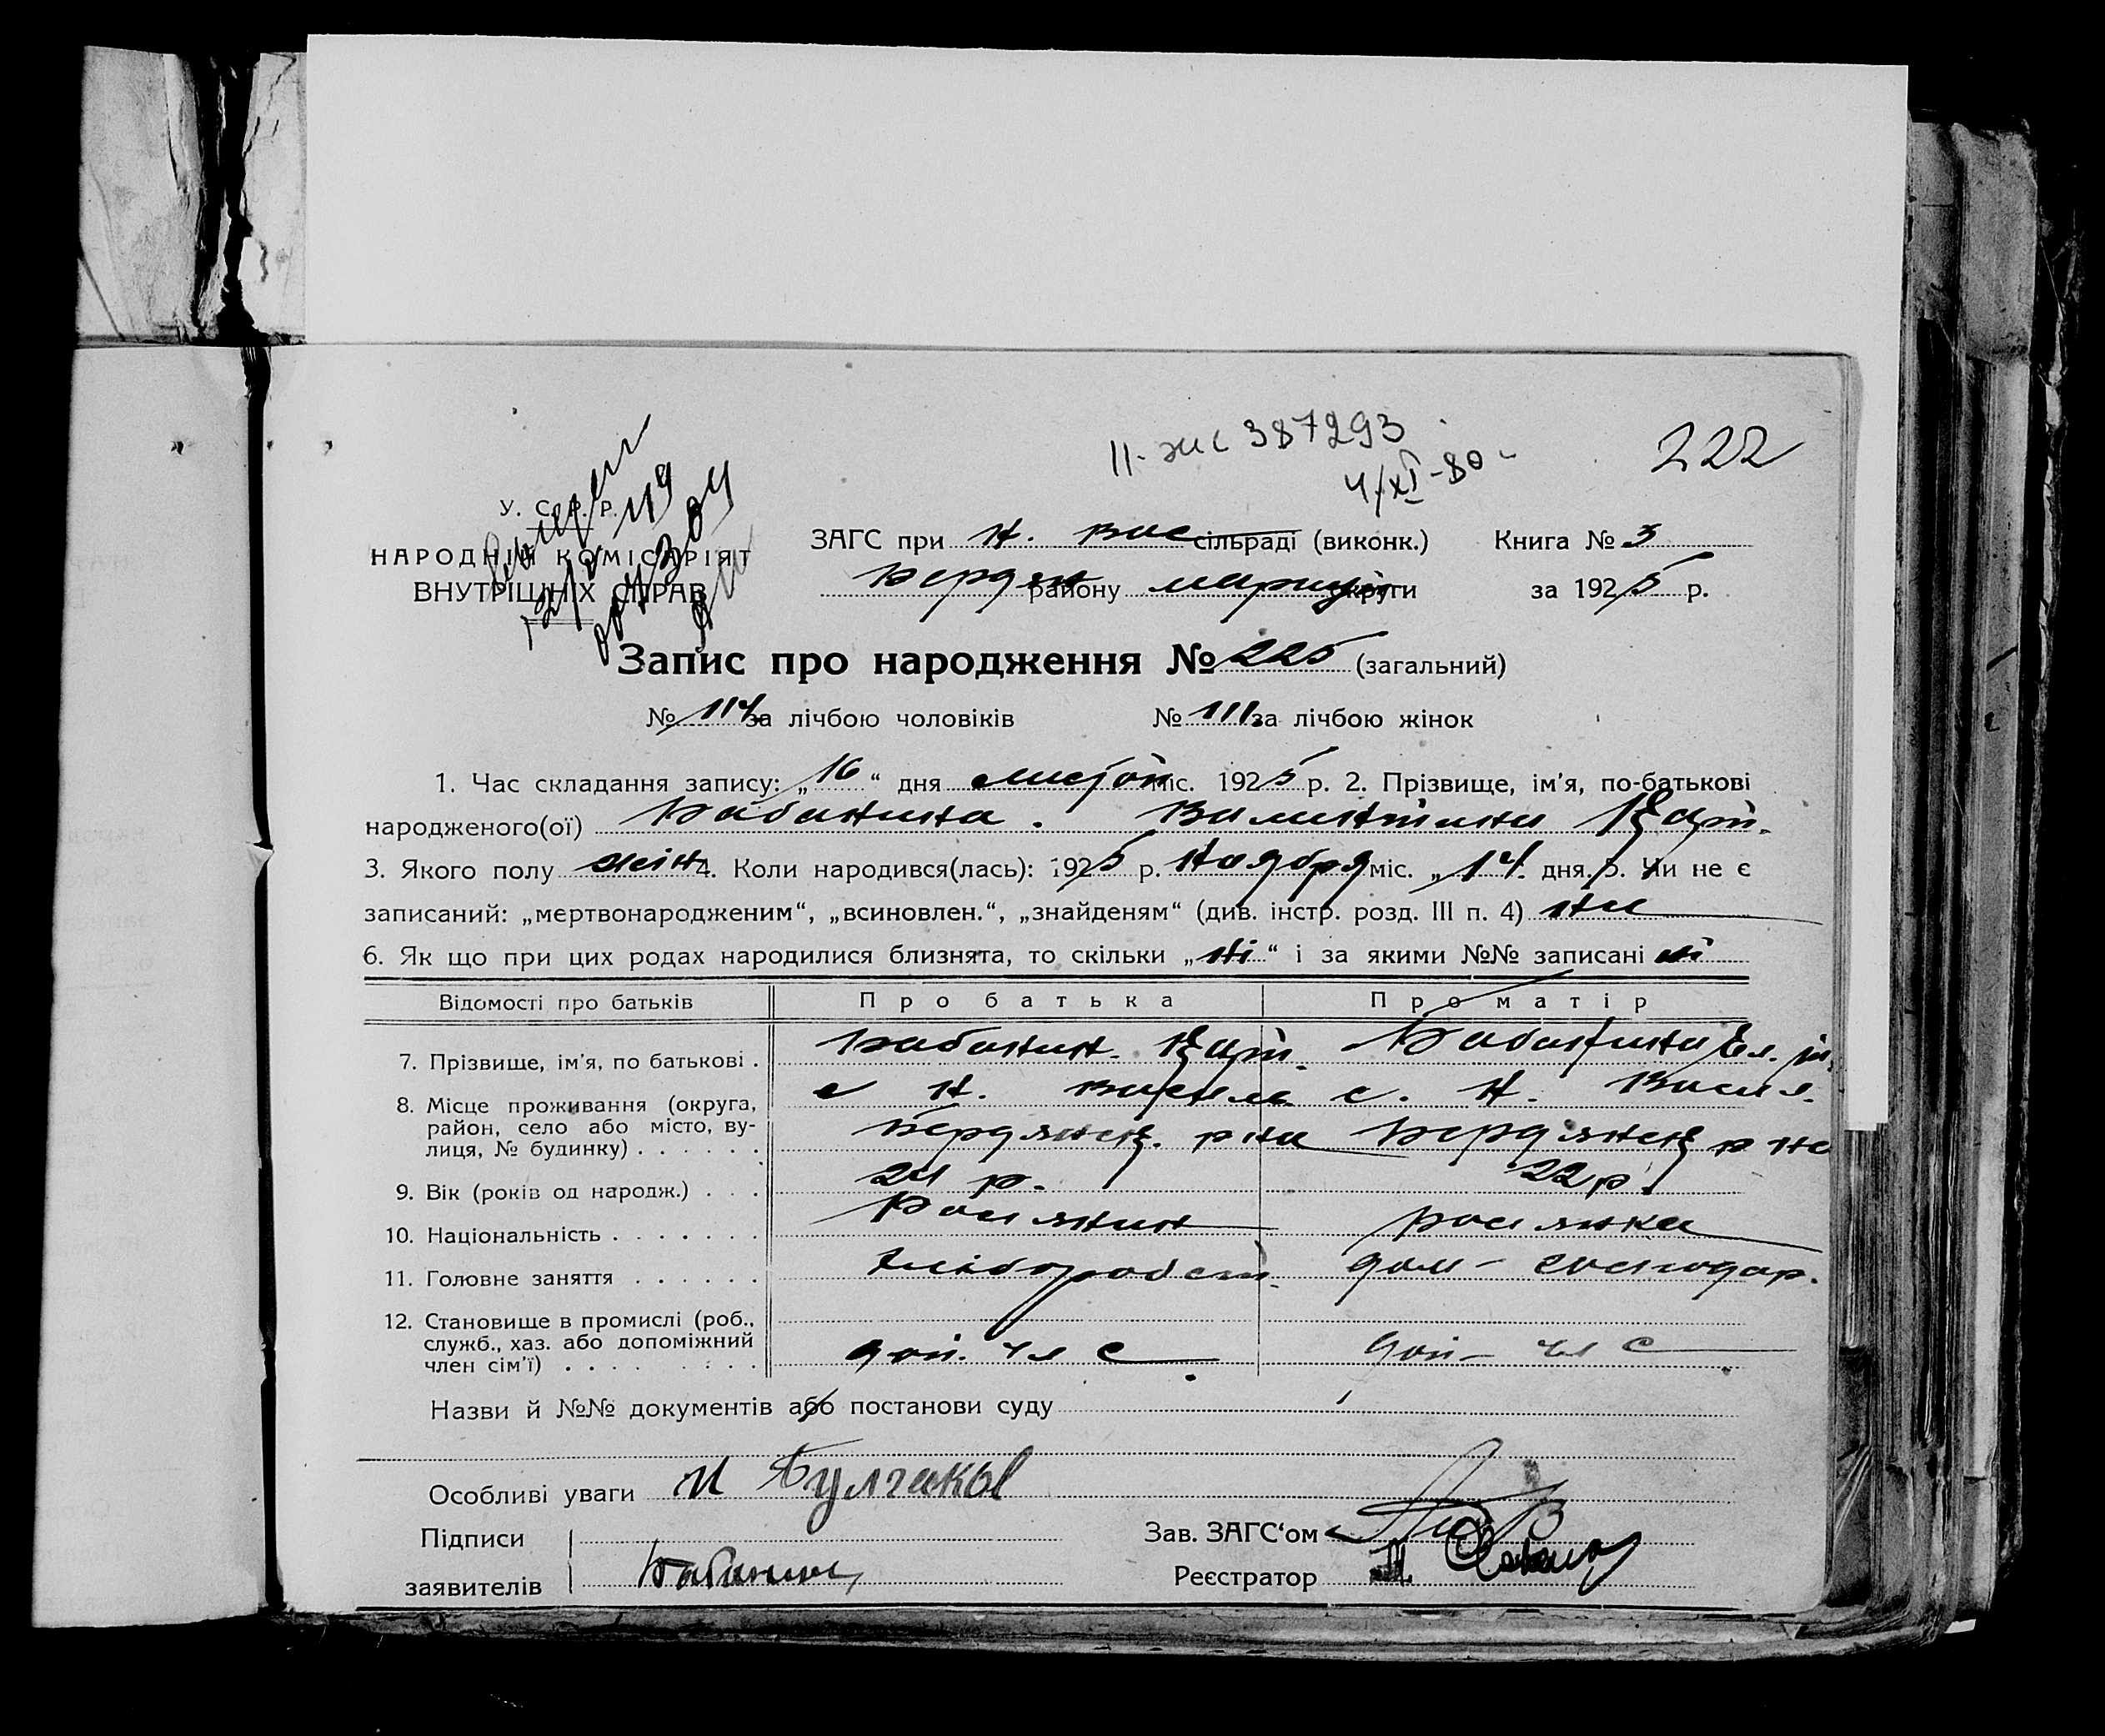 II-жс 387293
4/XI-80
222
У. С. Р. Р.
НАРОДНІЙ КОМІСАРІЯТ
ВНУТРІШНІХ СПРАВ
ЗАГС при Н. Вас сільраді (виконк.) Книга № 3
Бердян району маріуп округи за 1925 р.
Запис про народження № 225 (загальний)
№ 114 за лічбою чоловіків № 111 за лічбою жінок
1. Час складання запису: „16“ дня листоп міс. 1925 р. 2. Прізвище, ім'я, по-батькові
народженого(ої) Бабанина. Валинтина
3. Якого полу жін 4. Коли народився(лась): 1925 р. Ноября міс. „14. дня. 5. Чи не є
записаний: „мертвонародженим“, „всиновлен.“, „знайденям“ (див. інстр. розд. III п. 4) ни
6. Як що при цих родах народилися близнята, то скільки „ні“ і за якими №№ записані ні
Відомості про батьків Про батька Про матір
7. Прізвище, ім'я, по батькові . Бабанин. Бабанина
8. Місце проживання (округа, с Н. Василь с. Н. Васил.
район, село або місто, ву- Бердянск. р на Бердянск р на
лиця, № будинку) . . . . . .
9. Вік (років од народж.) . . . 24 р. 22 р.
10. Національність . . . . . . . Росиянин росиянка
11. Головне заняття . . . . . . хлібороб дом- господар.
12. Становище в промислі (роб.,
служб., хаз. або допоміжний
член сім'ї) . . . . . . . . . доп. чл с доп- чл с
Назви й №№ документів або постанови суду
Особливі уваги И Булгаков
Підписи Зав. ЗАГС‘ом
заявителів Бабанин Реєстратор